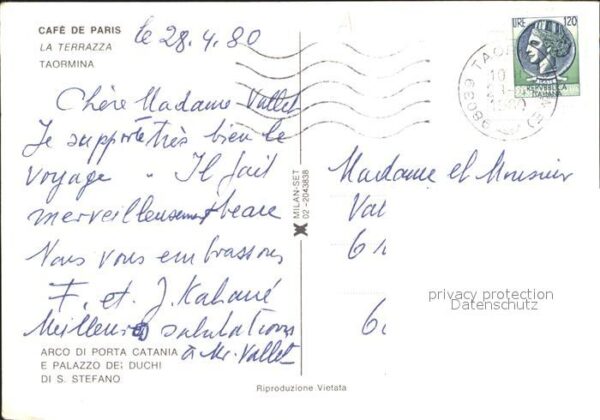 CAFÉ DE PARIS
LA TERRAZZA
TAORMINA
le 28.4.80
Chère Madame Vallet
Je supporte très bien le
voyage. Il fait
merveilleusement beau
Nous vous embrassons
F. et J.
Meilleures salutations
à Mr. Vallet
ARCO DI PORTA CATANIA
E PALAZZO DEI DUCHI
DI S. STEFANO
MILAN-SET
02-2043838
LIRE 120
REPVBBLICA
ITALIANA
98039 TAOR
Madame et Monsieur
Val
6
privacy protection
Datenschutz
6
Riproduzione Vietata